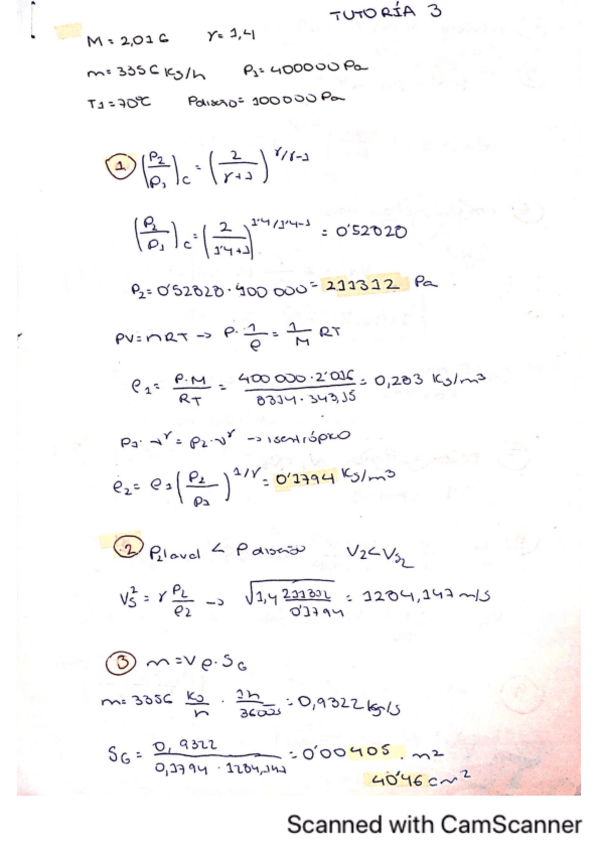 TUTORÍA 3
M = 2,016 γ = 1,4
m = 3356 Kg/h P1 = 400000 Pa
T1 = 70°C Pdiseño = 100000 Pa
① (P2/P1)c = (2/(γ+1))^(γ/γ-1)
(P2/P1)c = (2/(1'4+1))^(1'4/1'4-1) = 0'52828
P2 = 0'52828 · 400 000 = 211312 Pa
PV = nRT → P · 1/ρ = 1/M RT
ρ1 = P·M/RT = 400 000 · 2'016 / 8314 · 343,15 = 0,283 Kg/m³
P1 · v^γ = P2 · v^γ → isentrópico
ρ2 = ρ1 (P2/P1)^(1/γ) = 0'1794 Kg/m³
② P2 laval < P diseño V2 < Vs2
Vs² = γ P2/ρ2 → √(1,4 211312/0'1794) = 1284,147 m/s
③ m = V ρ · SG
m = 3356 Kg/h · 1h/3600s = 0,9322 kg/s
SG = 0,9322 / 0,1794 · 1284,147 = 0'00405 m²
40'46 cm²
Scanned with CamScanner